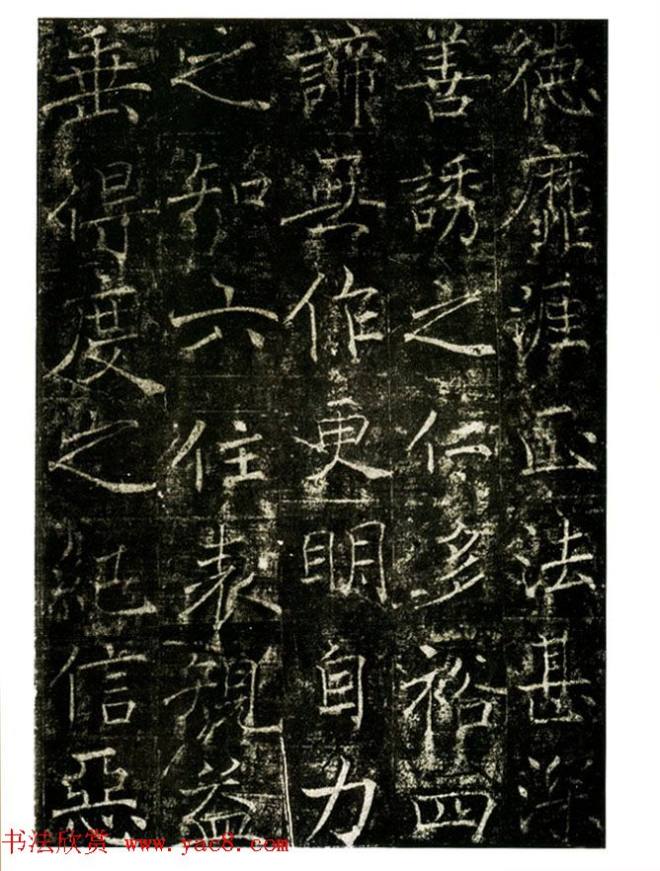 德靡涯正法甚深
善誘之仁多裕四
諦無作更明自力
之知六住表規益
垂得度之紀信惡
书法欣赏 www.yac8.com